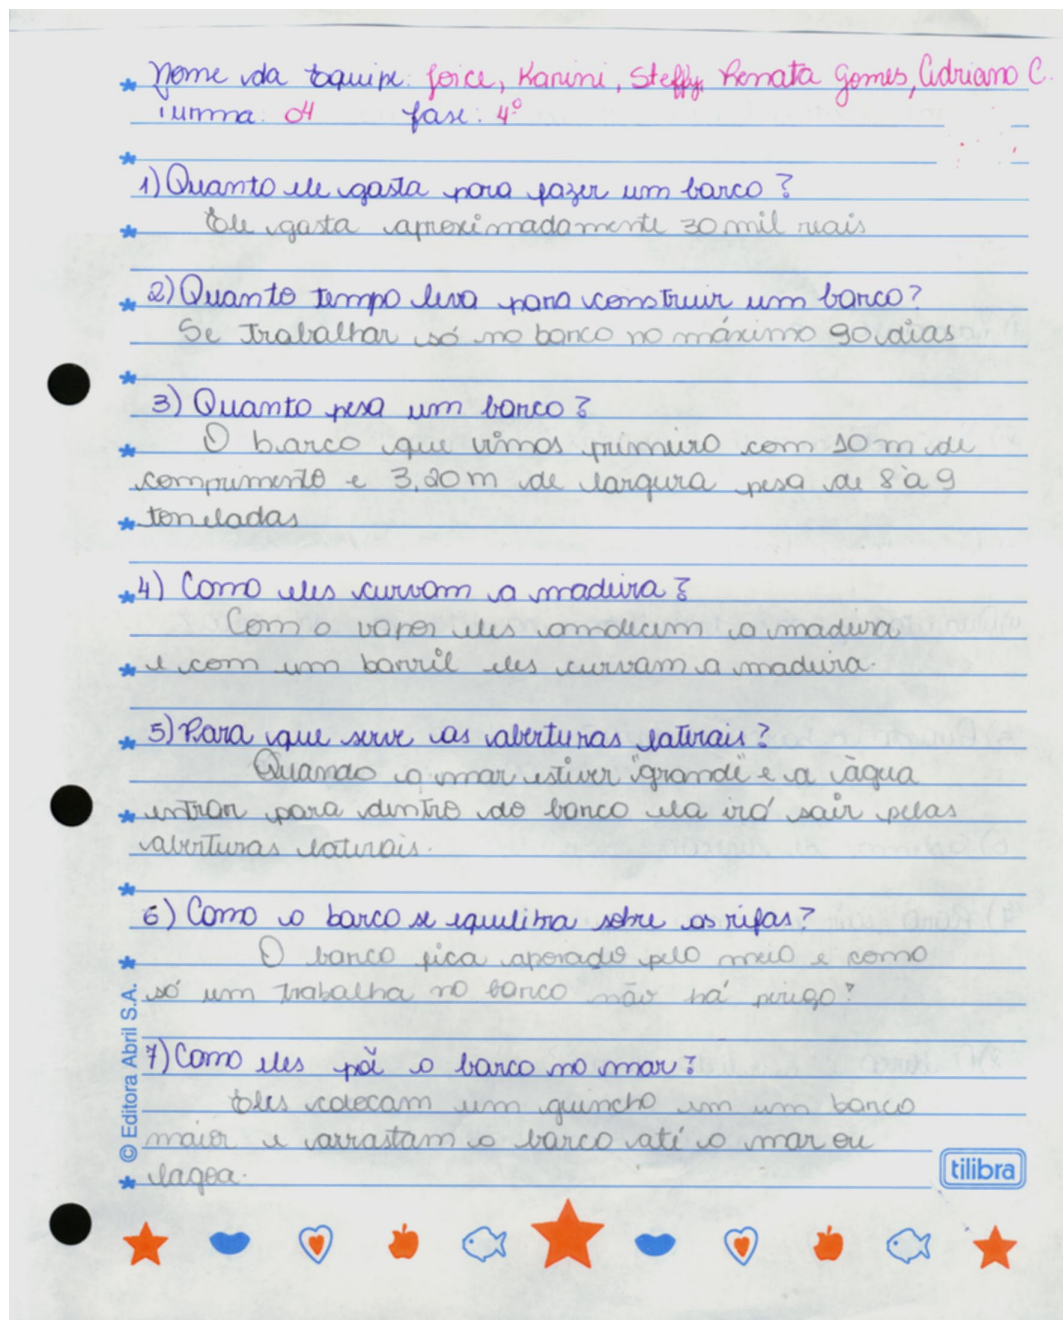 Nome da Equipe: Joice, Karini, Steffy, Renata Gomes, Adriano C.
Turma: 04 fase: 4º
1) Quanto ele gasta para fazer um barco?
Ele gasta aproximadamente 30 mil reais
2) Quanto tempo leva para construir um barco?
Se trabalhar só no barco no máximo 90 dias
3) Quanto pesa um barco?
O barco que vimos primeiro com 10 m de
comprimento e 3,20 m de largura pesa de 8 à 9
toneladas
4) Como eles curvam a madeira?
Com o vapor eles amolecem a madeira
e com um barril eles curvam a madeira.
5) Para que serve as aberturas laterais?
Quando o mar estiver "grande" e a àgua
entrar para dentro do barco ela irá sair pelas
aberturas laterais.
6) Como o barco se equilibra sobre as rifas?
O barco fica apoiado pelo meio e como
só um trabalha no barco não há perigo?
7) Como eles põe o barco no mar?
Eles colocam um guincho em um barco
maior e arrastam o barco até o mar ou
lagoa.
© Editora Abril S.A.
tilibra